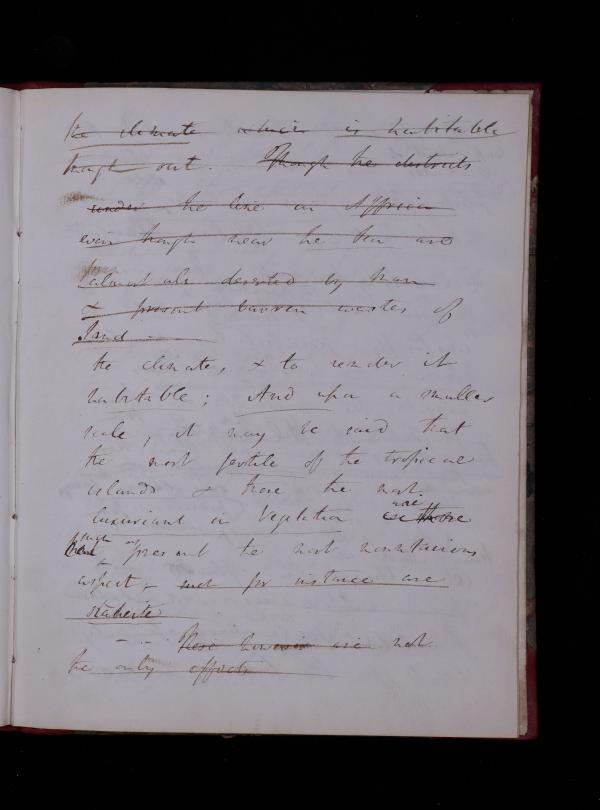 the climate which is habitable
though out. Though the districts
under the line in Affrica
even though near the Sea are
almost all deserted by man
& present barren wastes of
Sand
the climate, & to render it
habitable; And upon a smaller
scale, it may be said that
the most fertile of the tropical
islands & those the most
luxuriant in Vegetation are those
such as present the most mountainous
aspect, such for instance are
Otaheite
These however are not
the only effects